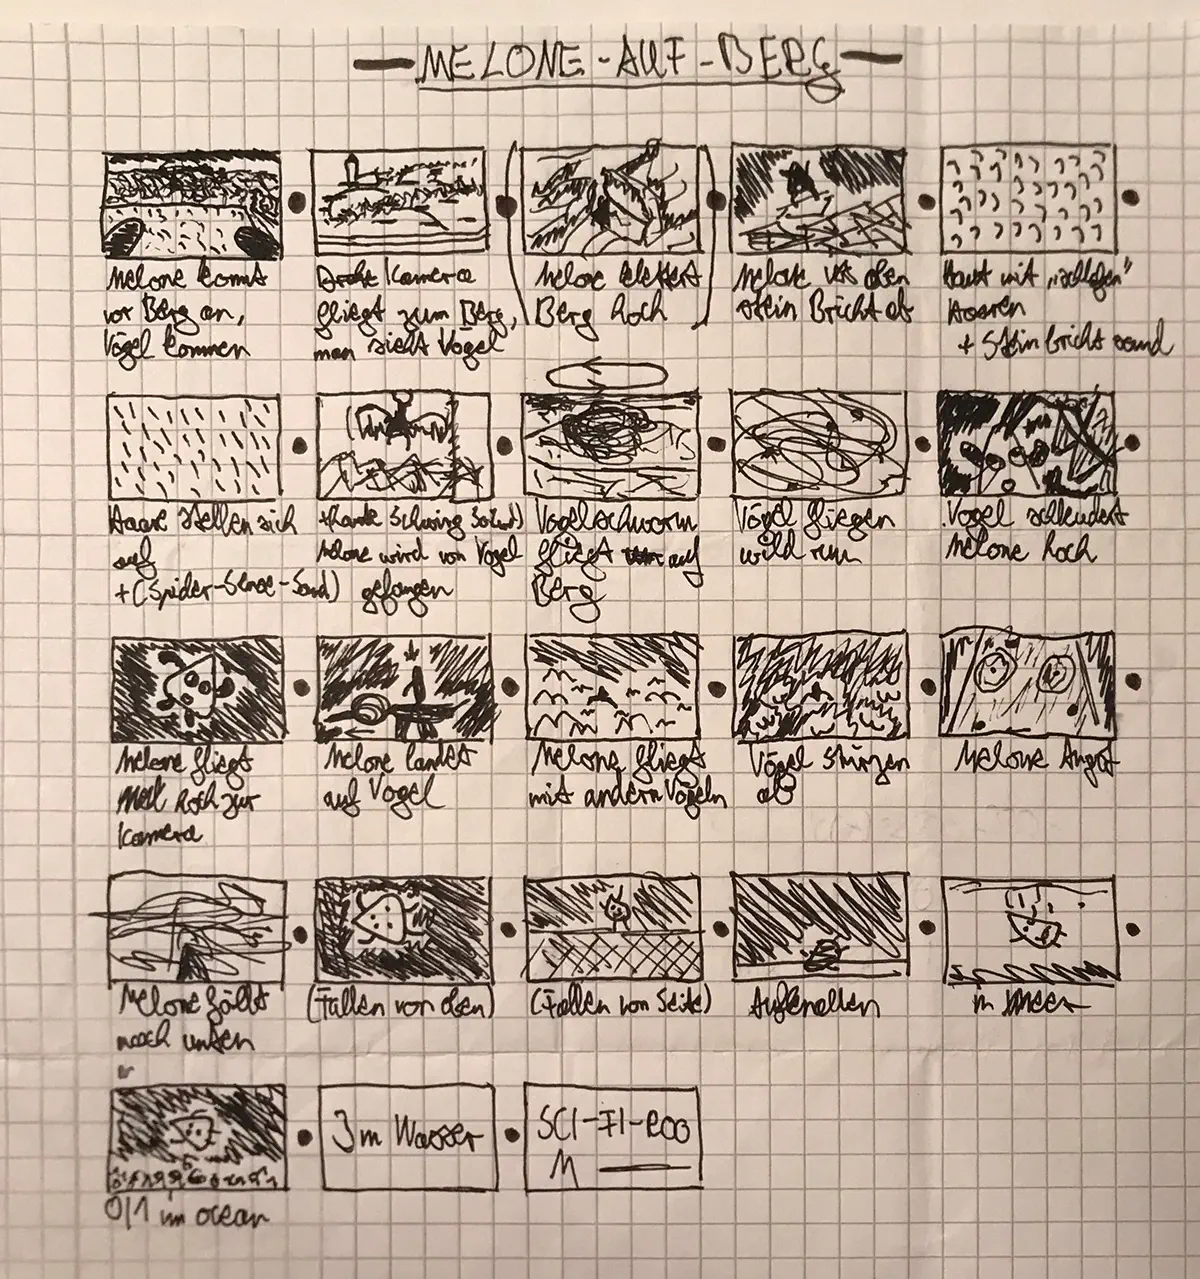 MELONE-AUF-BERG
Melone kommt
vor Berg an,
Vögel kommen
Kamera
fliegt zum Berg,
man sieht Vögel
Melone klettert
Berg hoch
Melone ist oben
Stein Bricht ab
Haut mit „schlafen"
Haaren
+ Stein bricht sound
Haare stellen sich
auf
+(Spider-Sense-Sound)
Melone wird von Vogel
gefangen
Vogelschwarm
fliegt auf
Berg
Vögel fliegen
wild rum
Vogel schleudert
Melone hoch
Melone fliegt
hoch zur
Kamera
Melone landet
auf Vogel
Melone fliegt
mit andern Vögeln
Vögel stürzen
ab
Melone Angst
Melone fällt
nach unten
(Fallen von oben)
(Fallen von Seite)
Aufknallen
im
0/1 im ocean
3m Wasser
SCI-FI-ROO
M